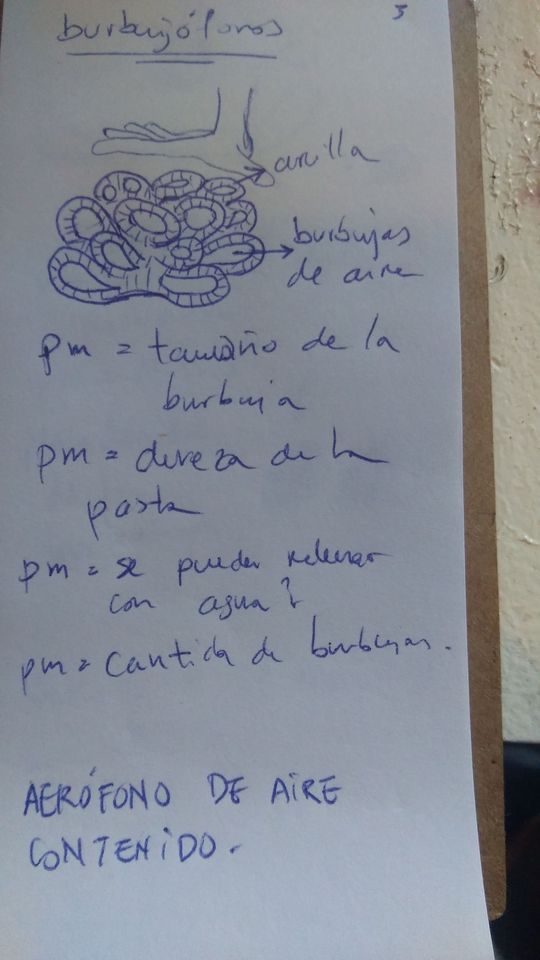 3
burbujófonos
arcilla
burbujas
de aire
pm = tamaño de la
burbuja
pm = dureza de la
pasta
pm = se pueden rellenar
con agua?
pm = cantida de burbujas.
AERÓFONO DE AIRE
CONTENIDO.